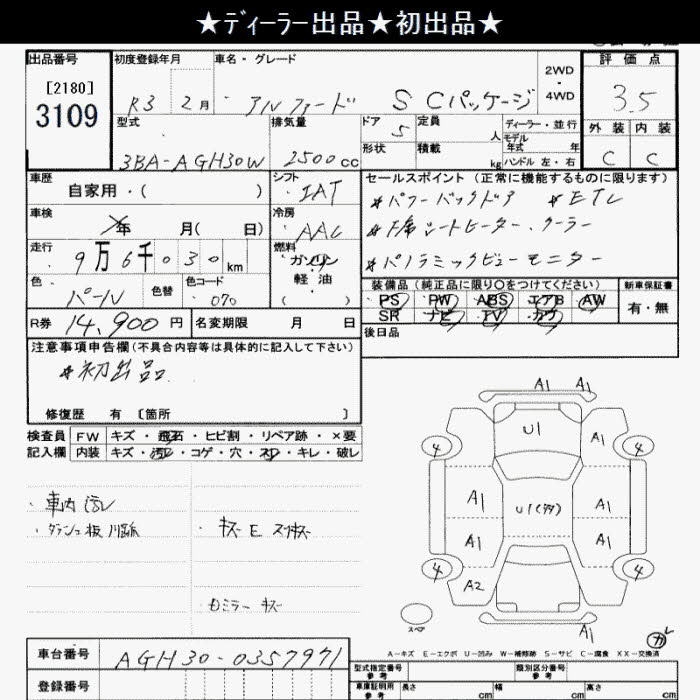 ★ディーラー出品★初出品★
出品番号
[2180]
3109
初度登録年月
R3 2月
車名・グレード
アルファード SCパッケージ
2WD・4WD
評価点
3.5
外装 内装
C C
型式
3BA-AGH30W
排気量
2500cc
ドア
5
定員
人
形状
積載
kg
ディーラー・並行
モデル年式 年
ハンドル 左・右
車歴
自家用・( )
シフト
IAT
セールスポイント (正常に機能するものに限ります)
*パワーバックドア *ETC
*シートヒーター、クーラー
*パノラミックビューモニター
車検
年 月( 日)
冷房
AAC
走行
9万6千030km
燃料
ガソリン
軽油
( )
色
パール
色替
色コード
070
装備品 (純正品に限り〇をつけてください)
PS PW ABS エアB AW
SR ナビ TV カワ
新車保証書
有・無
R券 14,900円
名変期限 月 日
後日品
注意事項申告欄(不具合内容等は具体的に記入して下さい)
*初出品
修復歴 有 〔箇所 〕
検査員記入欄
FW キズ・飛石・ヒビ割・リペア跡・×要
内装 キズ・汚レ・コゲ・穴・スレ・キレ・破レ
・車内汚レ
・キズ E スリキズ
ミラーキズ
A1 A1
U1
A1
4 4
A1 U1(多) A1
A1 A1
4 4
A2
スペア
A1 A1
A-キズ E-エクボ U-凹み W-補修跡 S-サビ C-腐食 XX-交換済
車台番号 AGH30-0357971
登録番号
型式指定番号
参考
類別区分番号
参考
車庫証明用
参考
長さ cm
幅 cm
高さ cm